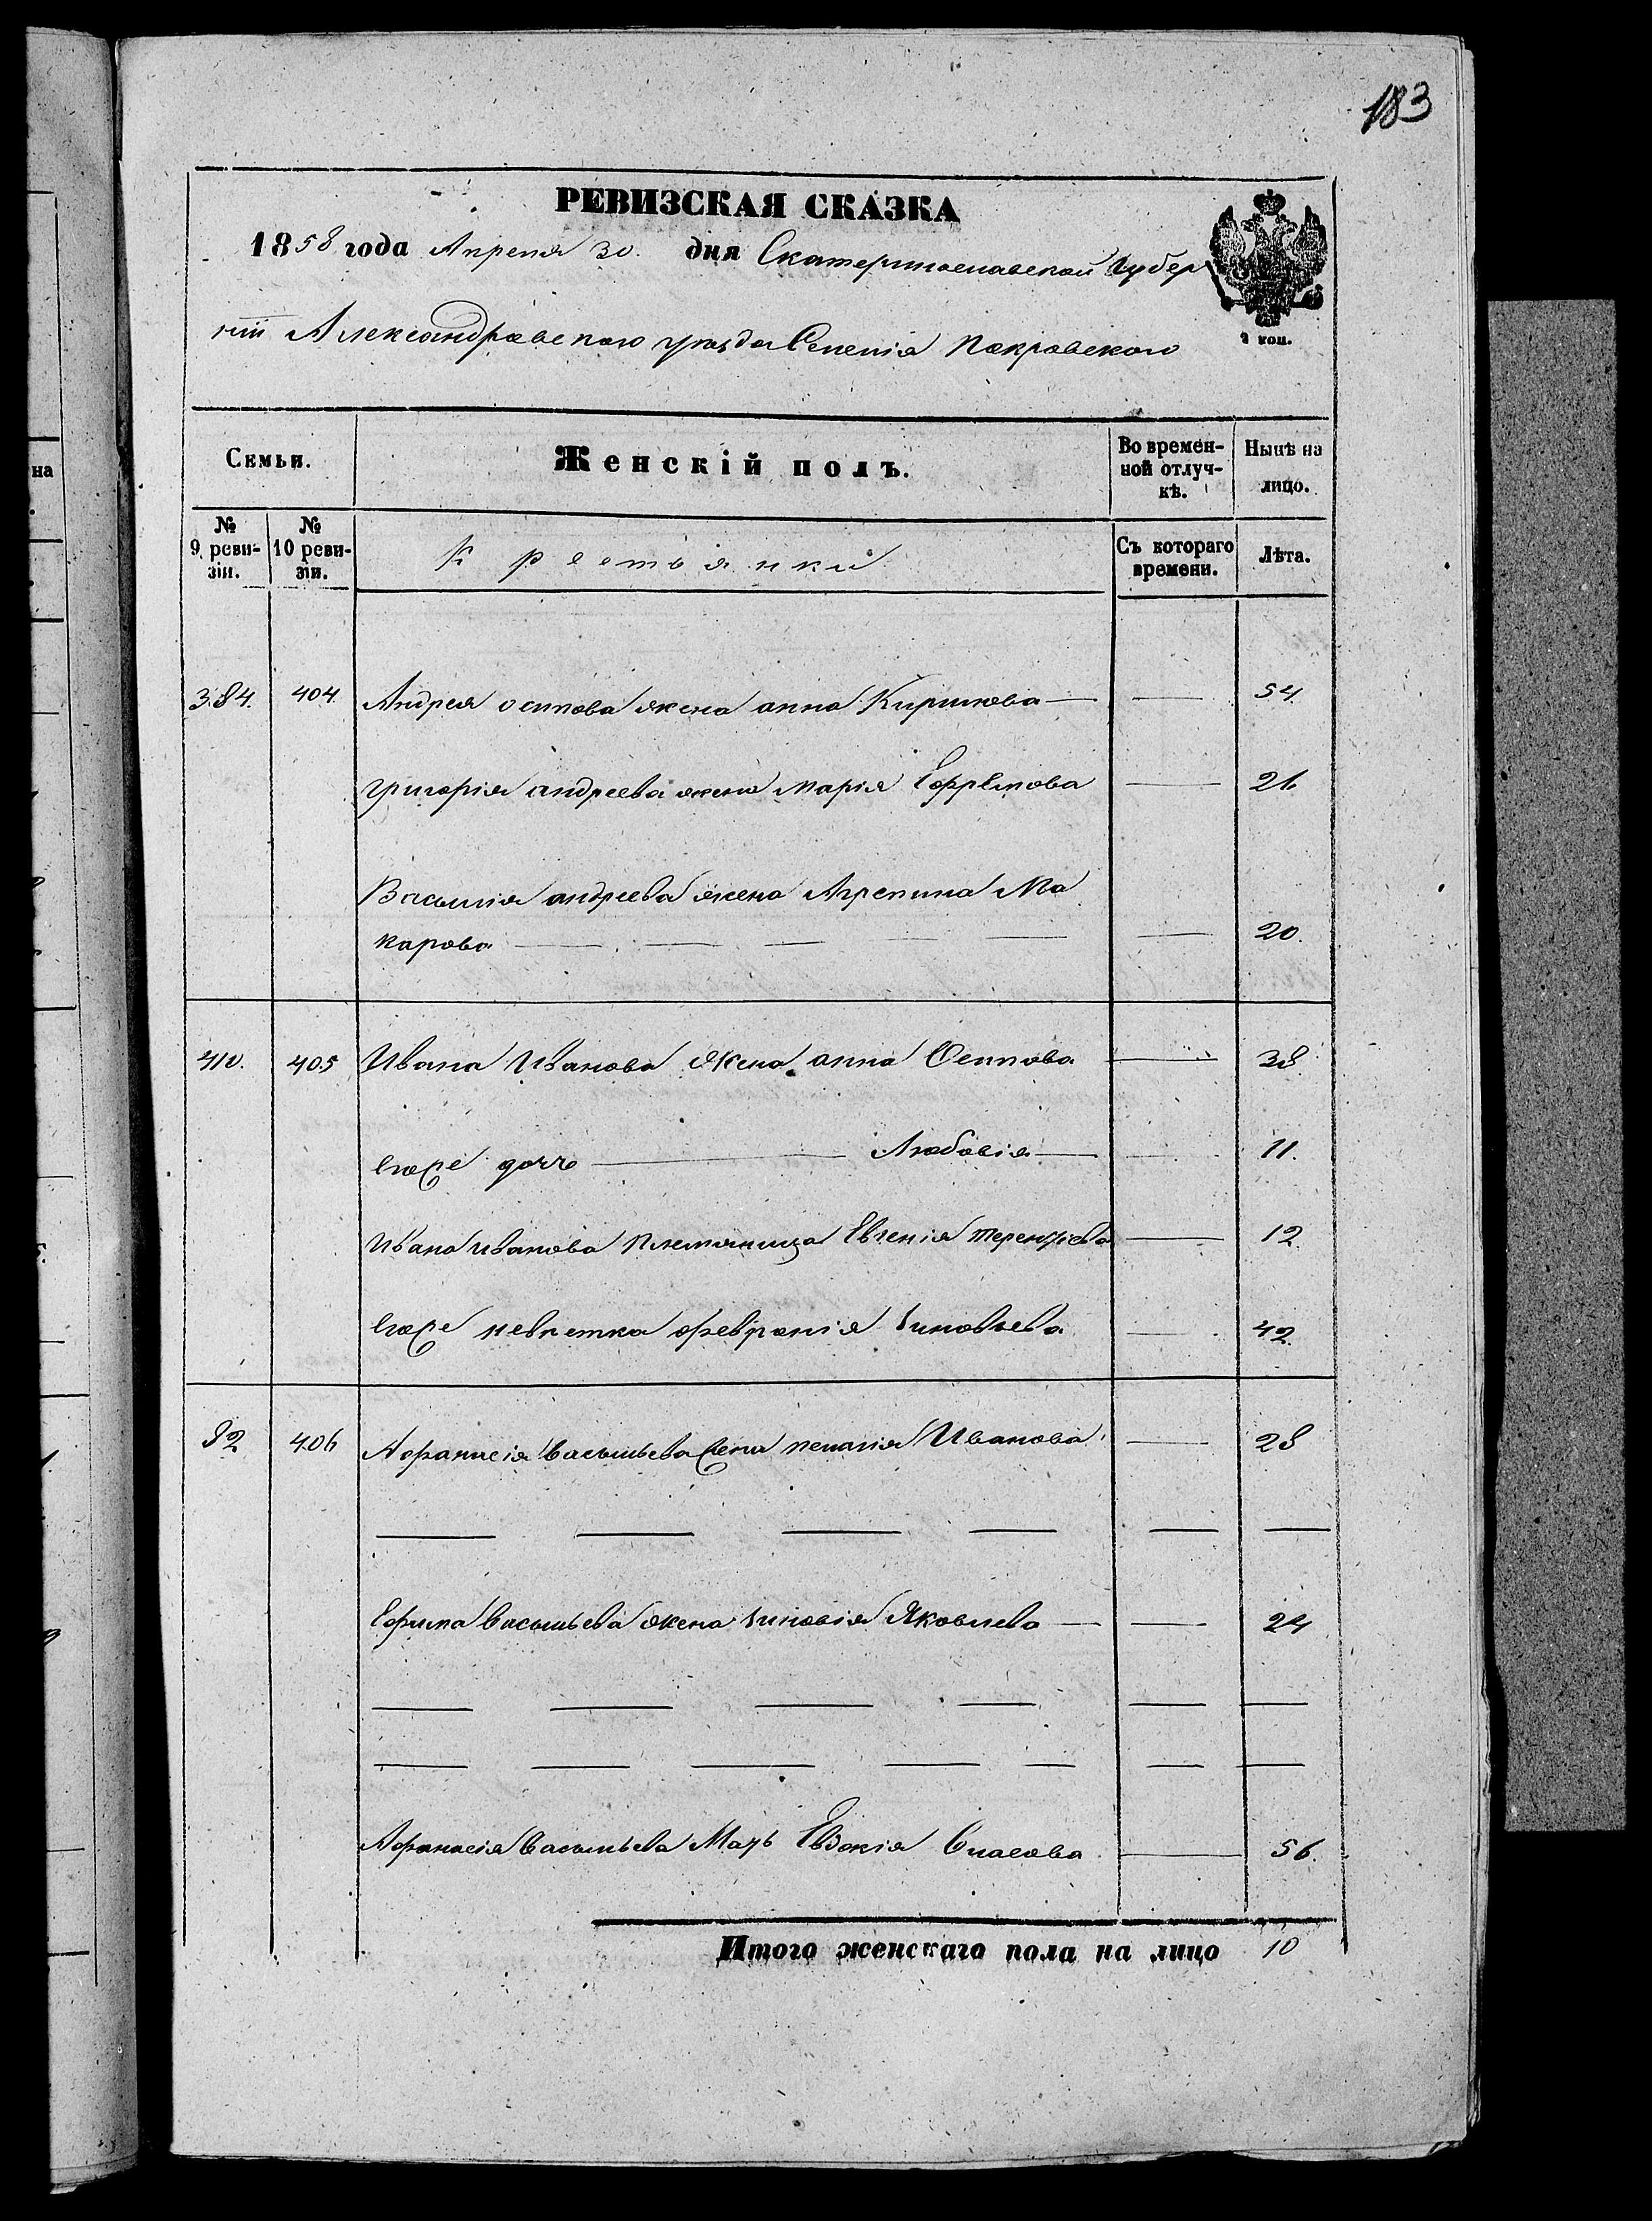 183
РЕВИЗСКАЯ СКАЗКА
1858 года Апреля 30. дня Екатеринославской Губер
нiи Александровского уезда Селенiя Покровского
2 коп.
Семьи.
Женскій полъ.
Во времен-
ной отлуч-
кѣ.
Нынѣ на
лицо.
№
9 реви-
зіи.
№
10 реви-
зіи.
Крестьянки
Съ котораго
времени.
Лѣта.
384. 404. Андрея осипова жена анна Кирилова — — 54.
григорія андреева жена марія Ефремова — 26
Василія андреева жена Агрепина Ма
карова — — — — — — 20.
410. 405 Ивана Иванова жена анна Осипова — 38
Егоже дочь — Любовія — — 11.
Ивана иванова племяница Евгенія терентіева — 12.
Егоже невестка февронія зиновьева — 42.
82 406 Афанасія васильева жена пелагія Иванова — 28
— — — — — —
Ефима васильева жена зиновія Яковлева — — 24
— — — — — —
— — — — — — —
Афанасія васильева Мать Евдокія Власова — 56.
Итого женскаго пола на лицо 10
на